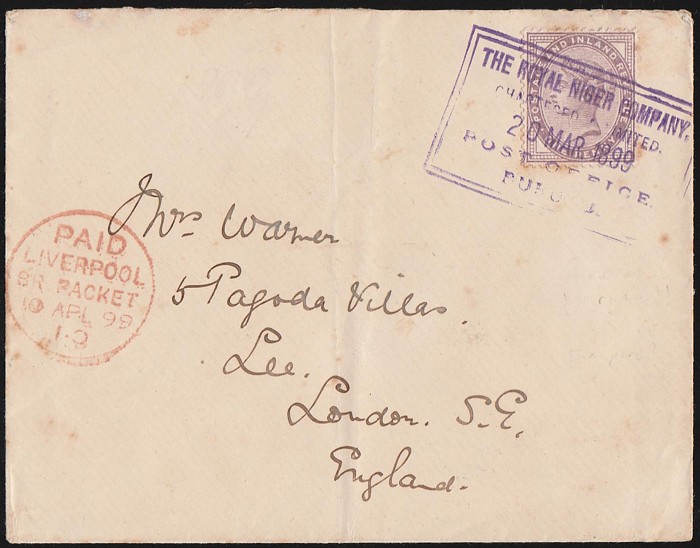 POSTAGE AND INLAND REVENUE
THE ROYAL NIGER COMPANY,
CHARTERED & LIMITED.
20 MAR 1899
POST OFFICE.
Mrs Warner
5 Pagoda Villas.
Lee.
London. S.E.
England.
PAID
LIVERPOOL
BR PACKET
10 APL 99